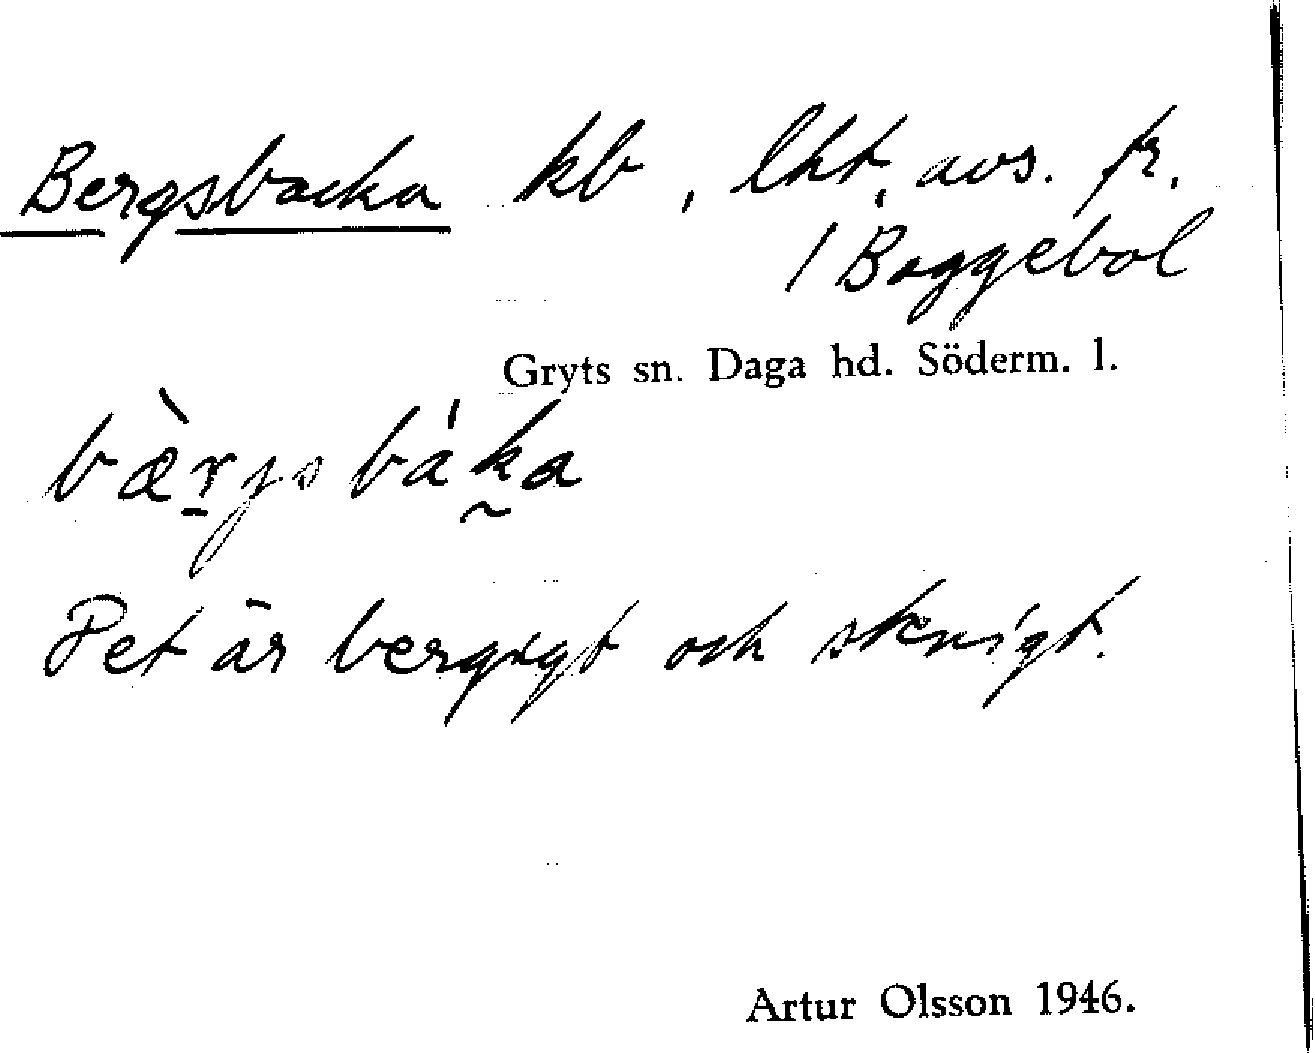 Bergsbacka kb, lht, avs. fr.
/ Baggebol
Gryts sn. Daga hd. Söderm. l.
bæ̀rjsbáka
Det är bergigt och stenigt.
Artur Olsson 1946.